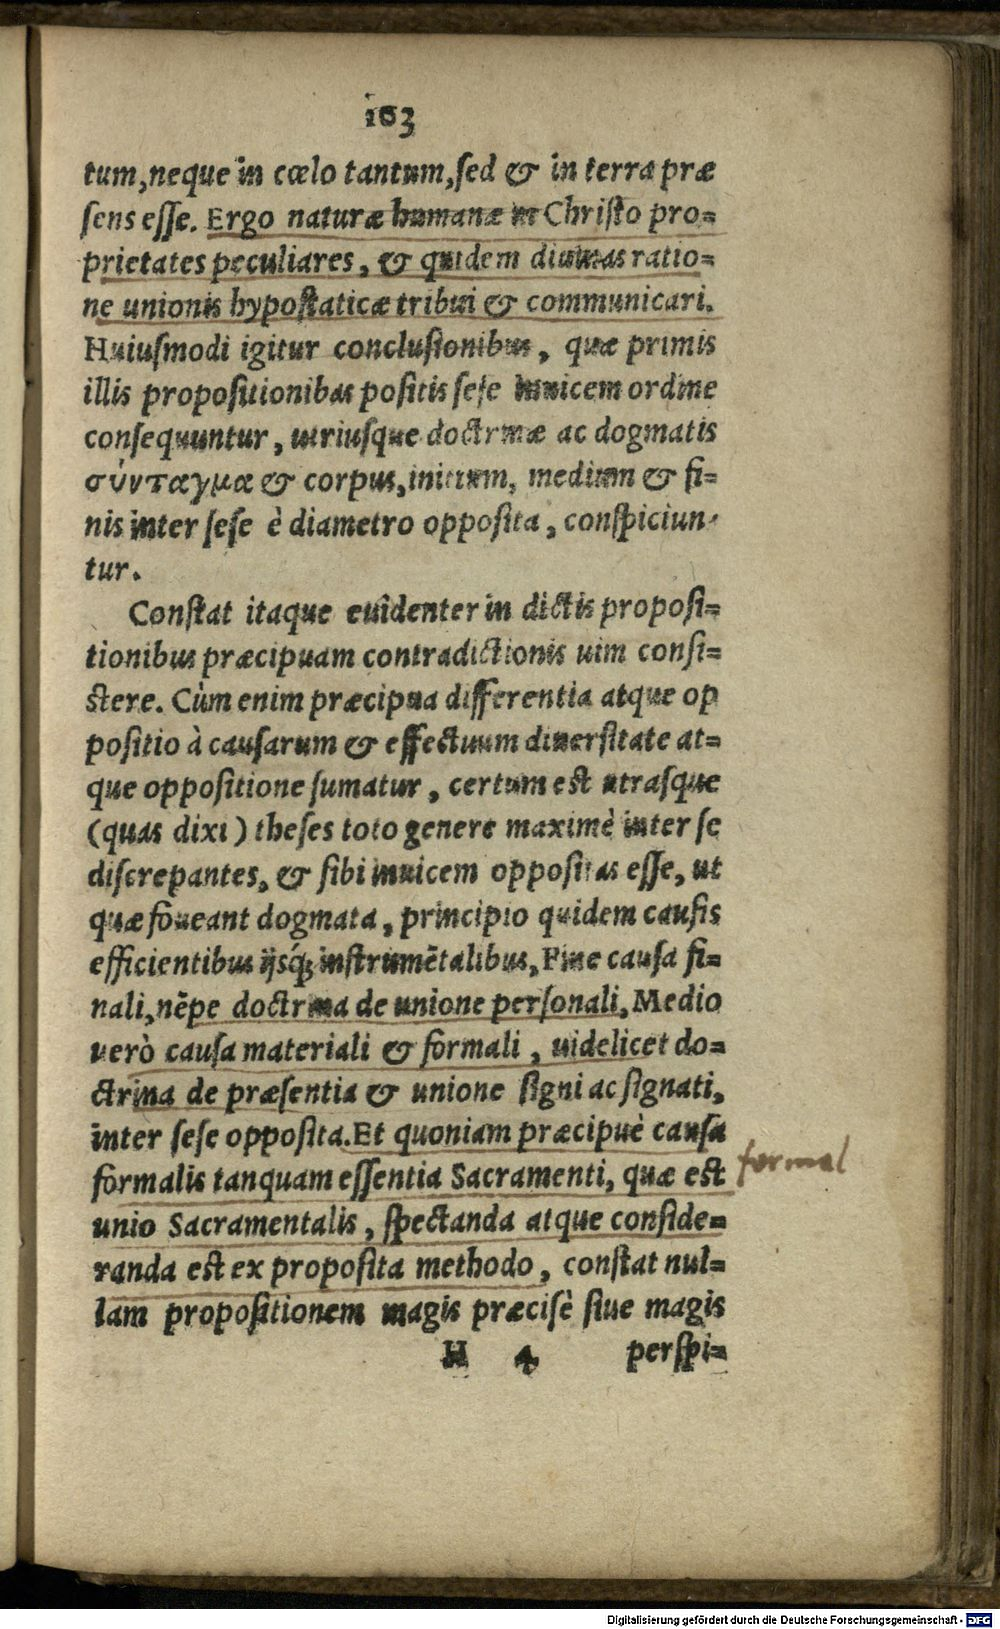 103
tum, neque in cœlo tantum, ſed & in terra præ
ſens eſſe. Ergo naturæ humanæ in Chriſto pro=
prietates peculiares, & quidem diuinas ratio=
ne unionis hypoſtaticæ tribui & communicari.
Huiuſmodi igitur concluſionibus, quæ primis
illis propoſitionibus poſitis ſeſe inuicem ordine
conſequuntur, utriuſque doctrinæ ac dogmatis
σύνταγμα & corpus, initium, medium & fi=
nis inter ſeſe è diametro oppoſita, conſpiciun=
tur.
Conſtat itaque euidenter in dictis propoſi=
tionibus præcipuam contradictionis uim conſi=
ſtere. Cùm enim præcipua differentia atque op
poſitio à cauſarum & effectuum diuerſitate at=
que oppoſitione ſumatur, certum eſt utraſque
(quas dixi) theſes toto genere maximè inter ſe
diſcrepantes, & ſibi inuicem oppoſitas eſſe, ut
quæ foueant dogmata, principio quidem cauſis
efficientibus ijsq́; inſtrumētalibus, Fine cauſa fi=
nali, nēpe doctrina de unione perſonali, Medio
uerò cauſa materiali & formali, uidelicet do=
ctrina de præſentia & unione ſigni ac ſignati,
inter ſeſe oppoſita. Et quoniam præcipuè cauſa
formalis tanquam eſſentia Sacramenti, quæ eſt
formal
unio Sacramentalis, ſpectanda atque conſide=
randa eſt ex propoſita methodo, conſtat nul=
lam propoſitionem magis præciſè ſiue magis
H 4 perſpi=
Digitalisierung gefördert durch die Deutsche Forschungsgemeinschaft - DFG